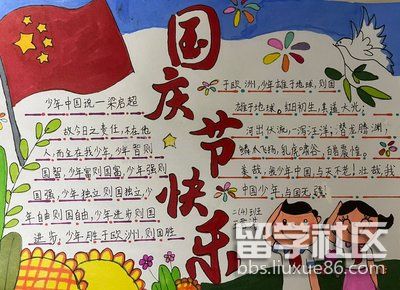 国庆节快乐
少年中国说—梁启超
故今日之责任,不在他
人,而全在我少年,少年智则
国智,少年富则国富,少年强则
国强,少年独立则国独立,少
年自由则国自由,少年进步则国
进步,少年胜于欧洲,则国胜
于欧洲,少年雄于地球,则国
雄于地球。红日初生,其道大光,
河出伏流,一泻汪洋,潜龙腾渊,
鳞爪飞扬,乳虎啸谷,百兽震惶。
美哉,我少年中国,与天不老!壮哉,我
中国少年,与国无疆!
留学社区
bbs.liuxue86.com